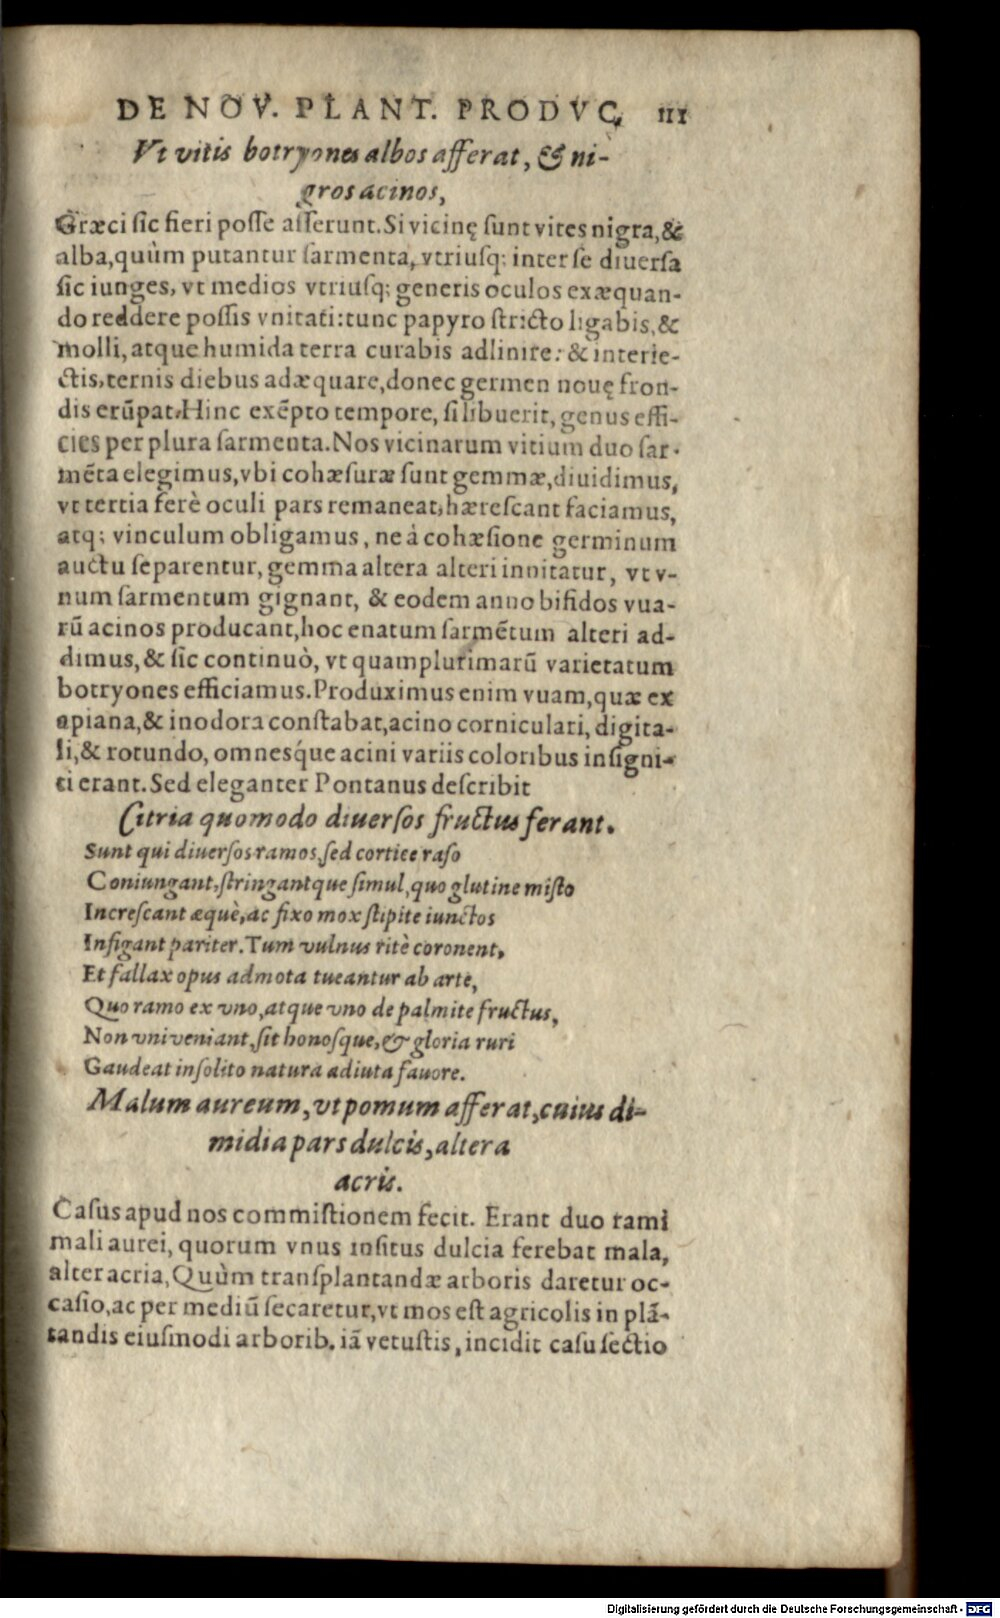 DE NOV. PLANT. PRODVC, 111
Vt vitis botryones albos afferat, & ni-
gros acinos,
Græci sic fieri posse asserunt. Si vicinę sunt vites nigra, &
alba, quùm putantur sarmenta, vtriusq; inter se diuersa
sic iunges, vt medios vtriusq; generis oculos exæquan-
do reddere possis vnitati: tunc papyro stricto ligabis, &
molli, atque humida terra curabis adlinire: & interie-
ctis, ternis diebus adæquare, donec germen nouę fron-
dis erūpat. Hinc exēpto tempore, si libuerit, genus effi-
cies per plura sarmenta. Nos vicinarum vitium duo sar-
mēta elegimus, vbi cohæsuræ sunt gemmæ, diuidimus,
vt tertia ferè oculi pars remaneat, hærescant faciamus,
atq; vinculum obligamus, ne à cohæsione germinum
auctu separentur, gemma altera alteri innitatur, vt v-
num sarmentum gignant, & eodem anno bifidos vua-
rū acinos producant, hoc enatum sarmētum alteri ad-
dimus, & sic continuò, vt quamplurimarū varietatum
botryones efficiamus. Produximus enim vuam, quæ ex
apiana, & inodora constabat, acino corniculari, digita-
li, & rotundo, omnesq́ue acini variis coloribus insigni-
ti erant. Sed eleganter Pontanus describit
Citria quomodo diuersos fructus ferant.
Sunt qui diuersos ramos, sed cortice raso
Coniungant, stringantque simul, quo glutine misto
Increscant æquè, ac fixo mox stipite iunctos
Infigant pariter. Tum vulnus ritè coronent,
Et fallax opus admota tueantur ab arte,
Quo ramo ex vno, atque vno de palmite fructus,
Non vni veniant, sit honosque, & gloria ruri
Gaudeat insolito natura adiuta fauore.
Malum aureum, vt pomum afferat, cuius di-
midia pars dulcis, altera
acris.
Casus apud nos commistionem fecit. Erant duo rami
mali aurei, quorum vnus insitus dulcia ferebat mala,
alter acria, Quùm transplantandæ arboris daretur oc-
casio, ac per mediū secaretur, vt mos est agricolis in plā-
tandis eiusmodi arborib. iā vetustis, incidit casu sectio
Digitalisierung gefördert durch die Deutsche Forschungsgemeinschaft - DFG